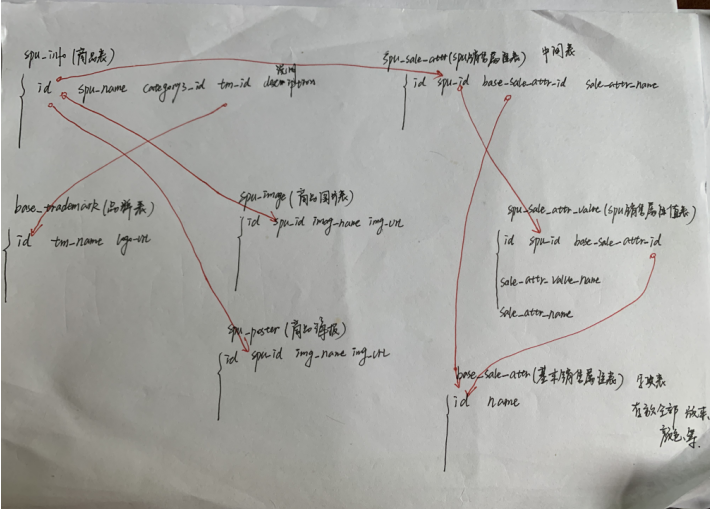 spu_info (商品表)
id spu_name category3_id tm_id description
说明
spu_sale_attr (spu销售属性表) 中间表
id spu_id base_sale_attr_id sale_attr_name
base_trademark (品牌表)
id tm_name logo_url
spu_image (商品图片表)
id spu_id img_name img_url
spu_sale_attr_value (spu销售属性值表)
id spu_id base_sale_attr_id
sale_attr_value_name
sale_attr_name
spu_poster (商品海报)
id spu_id img_name img_url
base_sale_attr (基本销售属性表)
id name
存放全部
颜色、